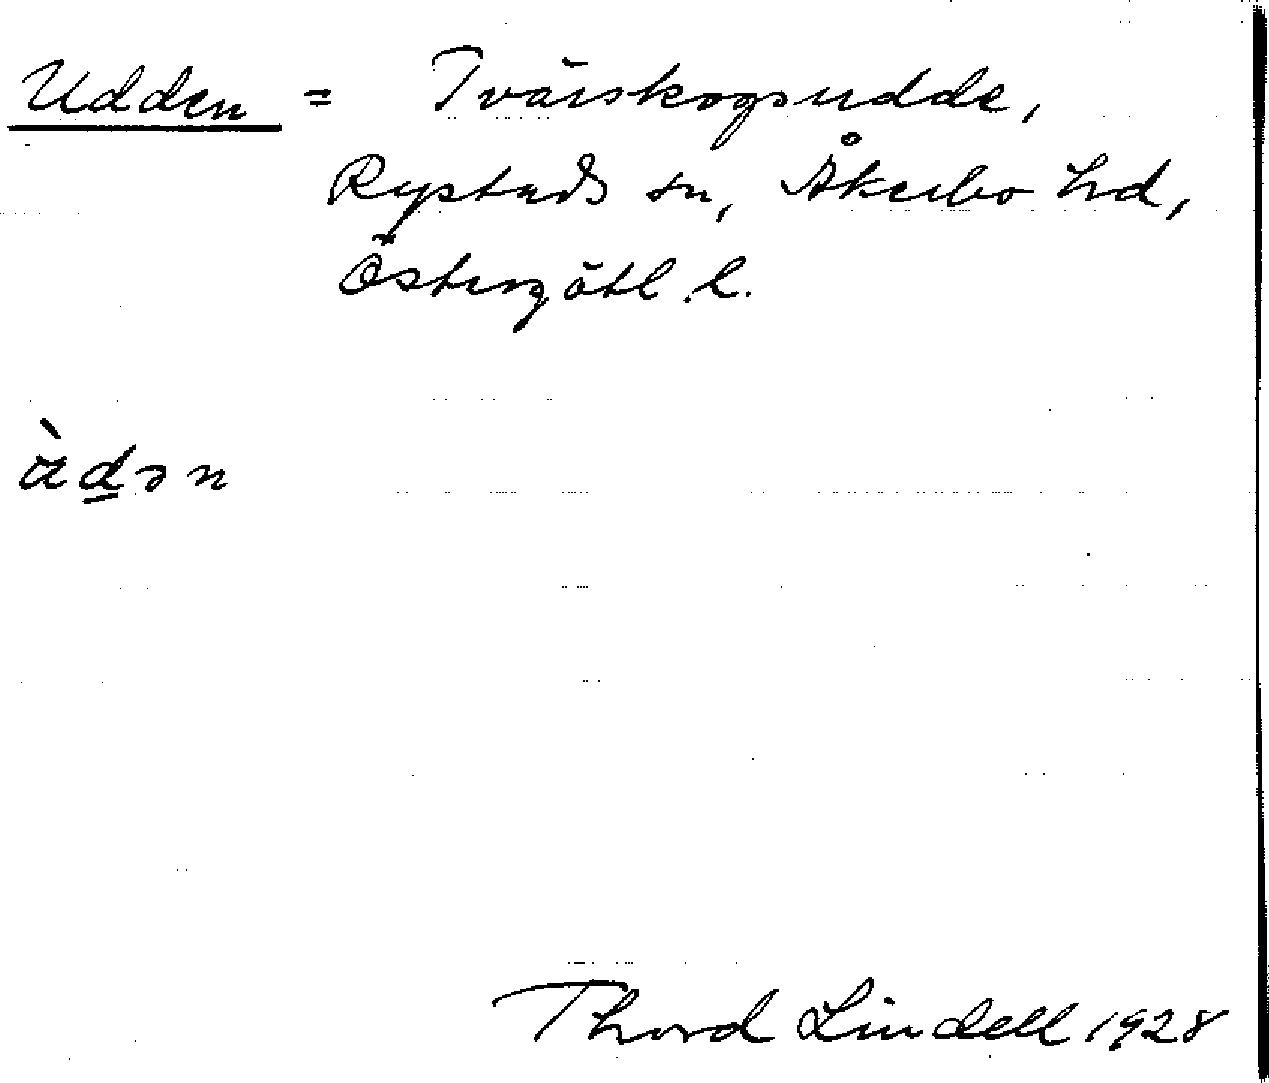 Udden = Tvärskogsudde,
Rystads sn, Åkerbo hd,
Östergötl. l.
ùdən
Thord Lindell 1928